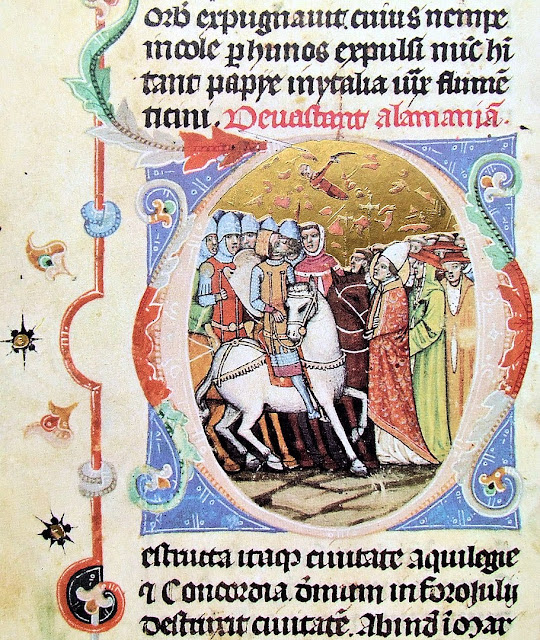 orbē expugnauit. cuius nempe
incole ꝑ hunos expulsi nūc hī
tant papye in ytalia iuͣx flumē
ticini. Deuastant alamaniā.
Destructa itaqꝫ ciuitate aquilegie
⁊ Concordia. diuinum in foroJulij
destruxit ciuitatē. Abinde ī mar